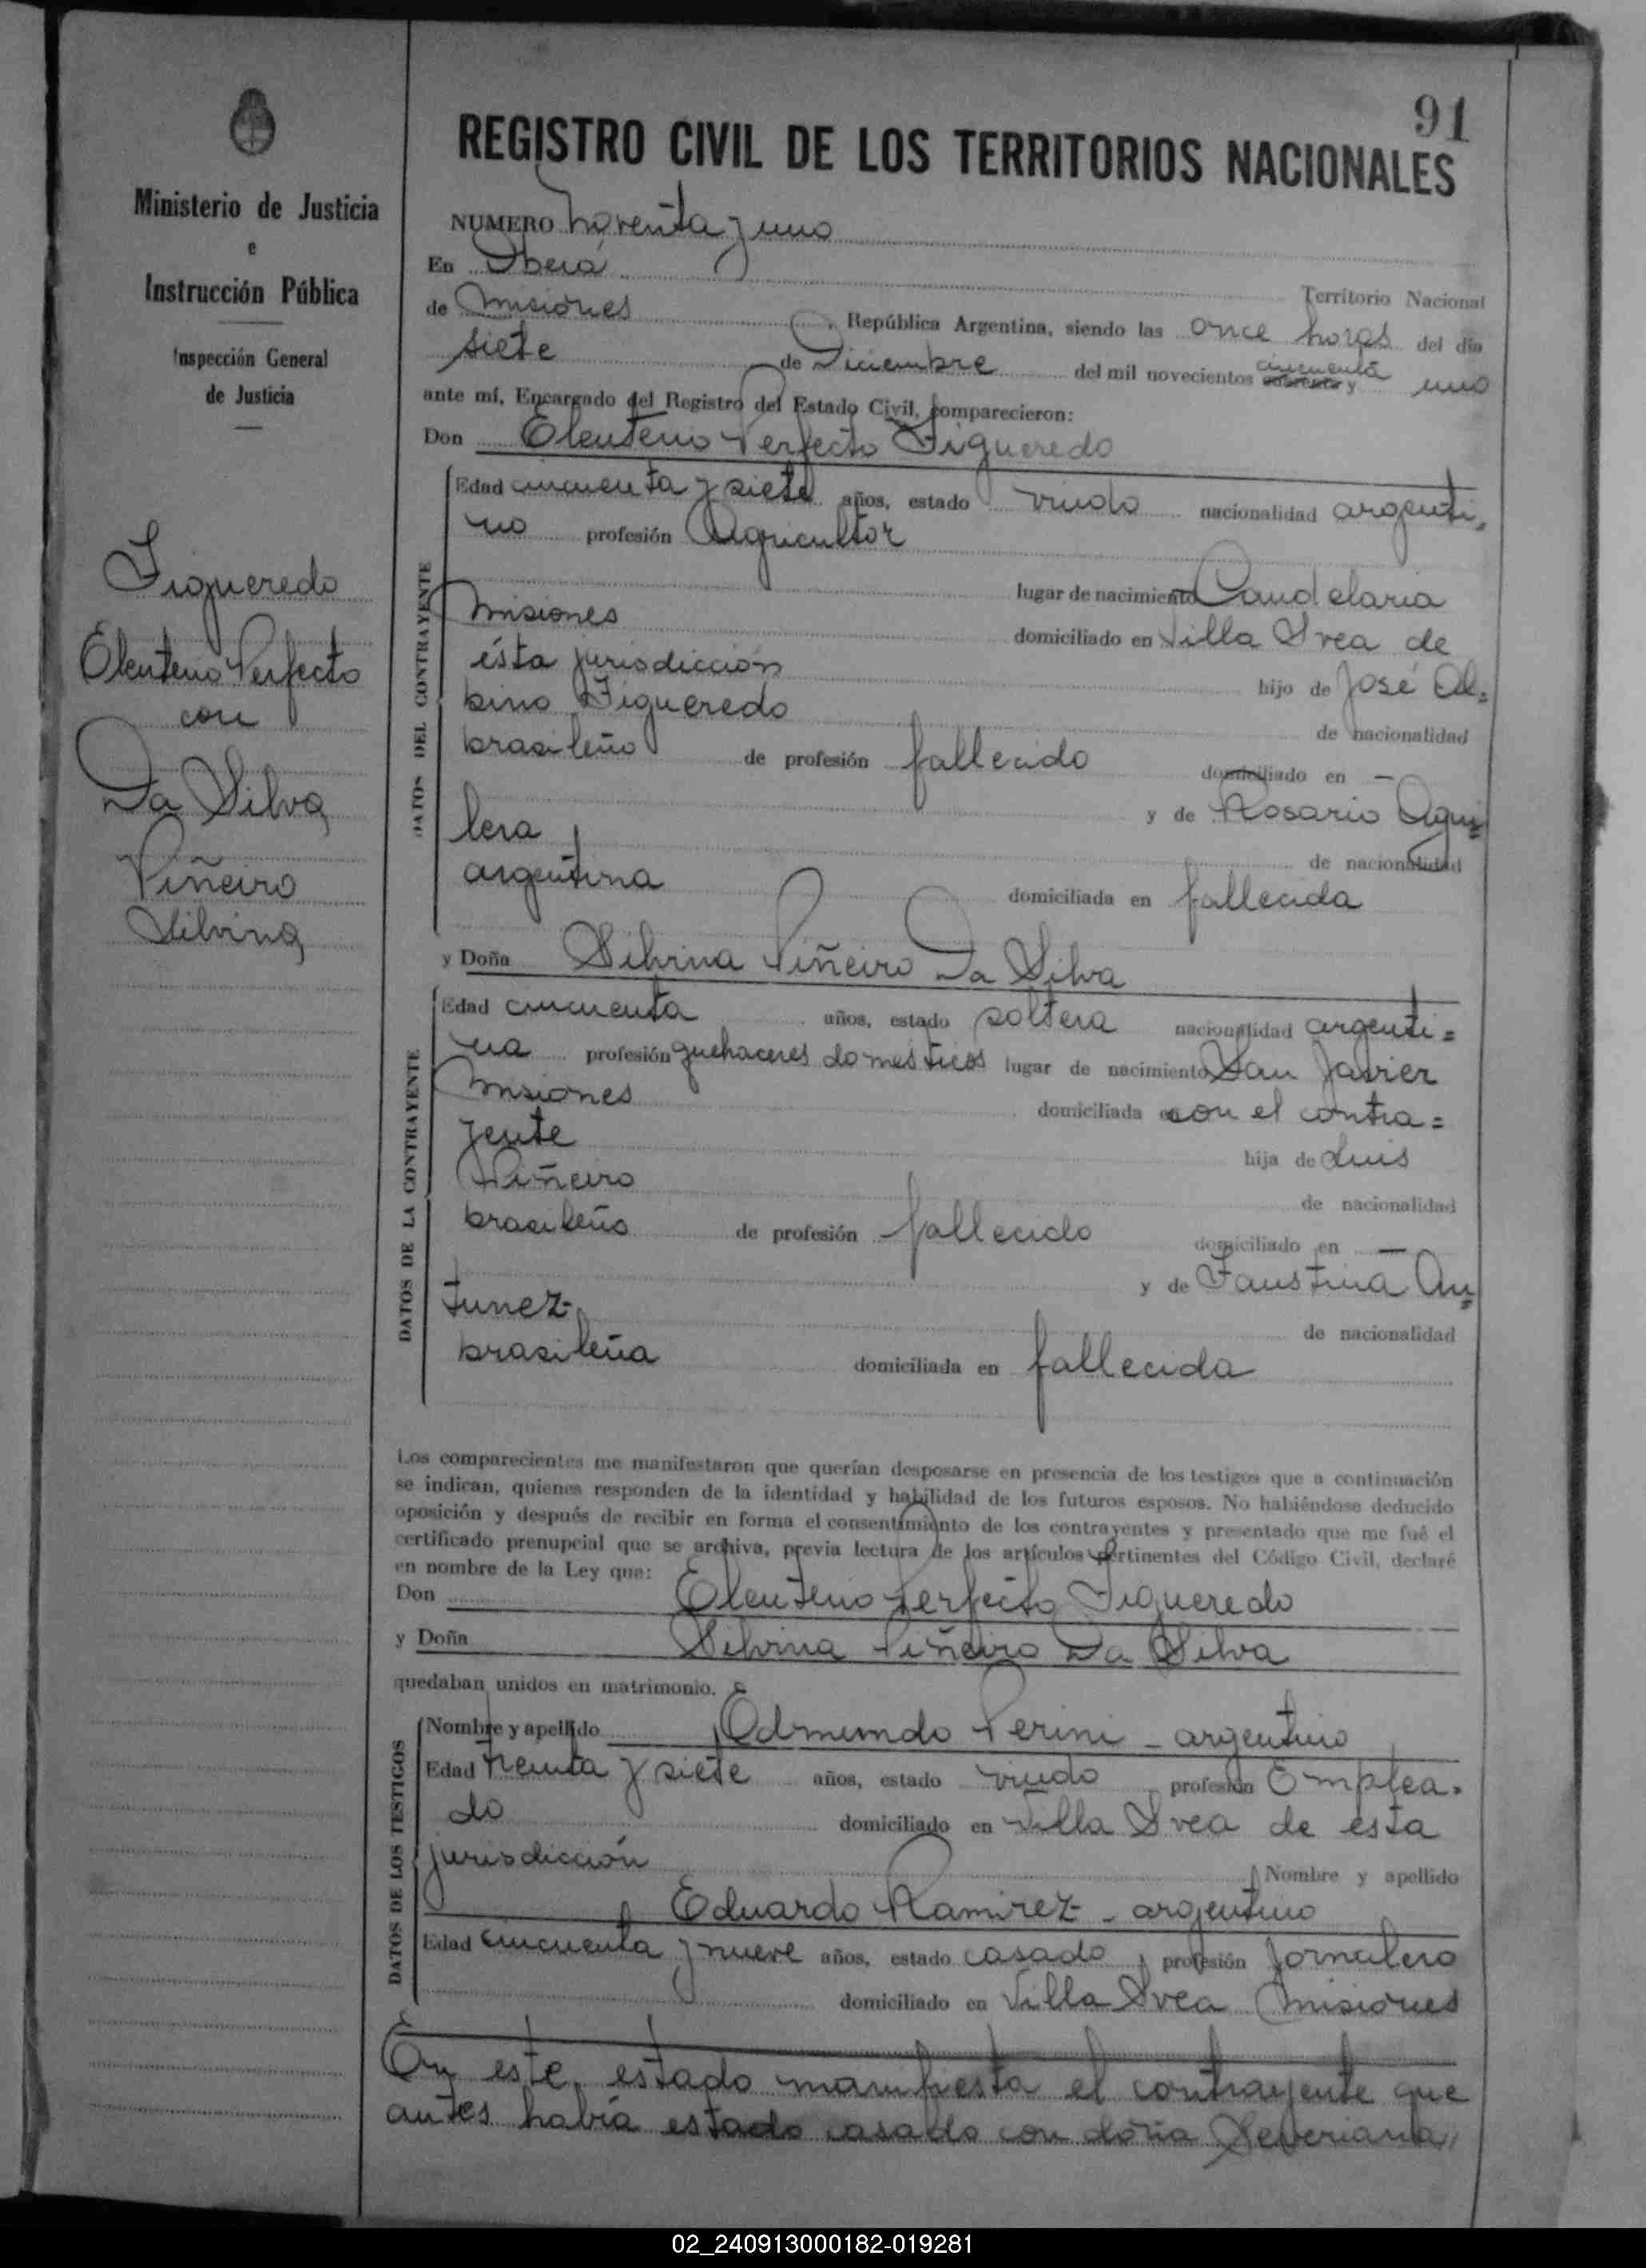 91
REGISTRO CIVIL DE LOS TERRITORIOS NACIONALES
Ministerio de Justicia
e
Instrucción Pública
Inspección General
de Justicia
Figueredo
Eleuterio Perfecto
con
Da Silva
Piñeiro
Silvina
NUMERO Noventa y uno
En Oberá Territorio Nacional
de Misiones República Argentina, siendo las once horas del día
siete de Diciembre del mil novecientos cincuenta y uno
ante mí, Encargado del Registro del Estado Civil, comparecieron:
Don Eleuterio Perfecto Figueredo
DATOS DEL CONTRAYENTE
Edad cincuenta y siete años, estado viudo nacionalidad argenti-
no profesión Agricultor
lugar de nacimiento Candelaria
Misiones domiciliado en Villa Svea de
ésta jurisdicción hijo de José Al=
bino Figueredo de nacionalidad
brasileño de profesión fallecido domiciliado en —
y de Rosario Agui=
lera de nacionalidad
argentina domiciliada en fallecida
y Doña Silvina Piñeiro Da Silva
DATOS DE LA CONTRAYENTE
Edad cincuenta años, estado soltera nacionalidad argenti=
na profesión quehaceres domésticos lugar de nacimiento San Javier
Misiones domiciliada en con el contra=
yente hija de Luis
Piñeiro de nacionalidad
brasileño de profesión fallecido domiciliado en —
y de Faustina An=
tunez de nacionalidad
brasileña domiciliada en fallecida
Los comparecientes me manifestaron que querían desposarse en presencia de los testigos que a continuación
se indican, quienes responden de la identidad y habilidad de los futuros esposos. No habiéndose deducido
oposición y después de recibir en forma el consentimiento de los contrayentes y presentado que me fué el
certificado prenupcial que se archiva, previa lectura de los artículos pertinentes del Código Civil, declaré
en nombre de la Ley que:
Don Eleuterio Perfecto Figueredo
y Doña Silvina Piñeiro Da Silva
quedaban unidos en matrimonio.
DATOS DE LOS TESTIGOS
Nombre y apellido Edmundo Perini - argentino
Edad treinta y siete años, estado viudo profesión Emplea-
do domiciliado en Villa Svea de esta
jurisdicción Nombre y apellido
Eduardo Ramirez - argentino
Edad cincuenta y nueve años, estado casado profesión Jornalero
domiciliado en Villa Svea Misiones
En este estado manifiesta el contrayente que
antes había estado casado con doña Severiana
02_240913000182-019281